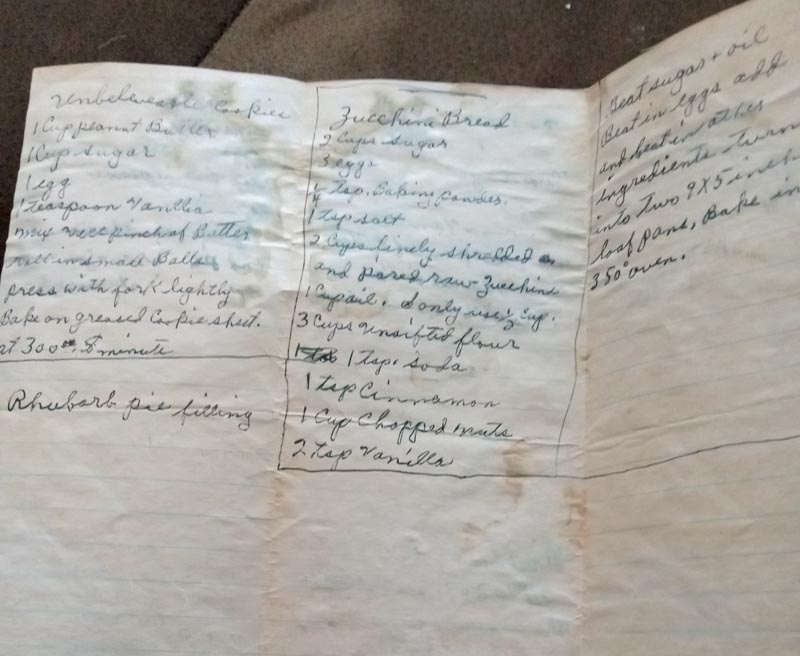 Unbelieveable Cookies
1 Cup peanut Butter
1 Cup sugar
1 egg
1 teaspoon Vanilla
mix nice pinch of Butter
roll in small Balls
press with fork lightly
Bake on greased Cookie sheet.
at 300° 8 minute
Rhubarb pie filling
Zucchini Bread
2 Cups sugar
3 eggs
1/4 tsp. Baking powder.
1 tsp salt
2 Cups finely shredded
and pared raw Zucchini
1 Cup oil. I only use 1/2 Cup.
3 Cups unsifted flour
1 tsp. Soda
1 tsp Cinnamon
1 Cup Chopped nuts
2 tsp Vanilla
Beat sugar + oil
Beat in eggs add
and beat in other
ingredients turn
into two 9X5 inch
loaf pans, Bake in
350° oven.